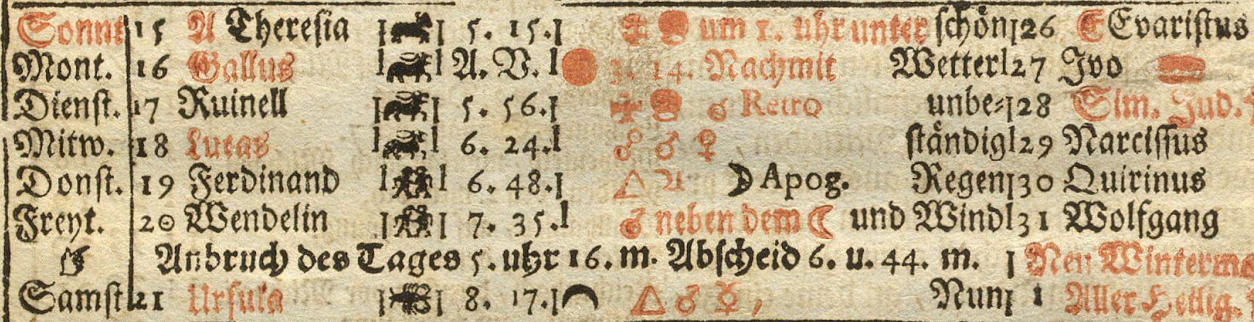 Sonnt 15 A Theresia 5. 15. um 1. uhr unter schön 26 E Evaristus
Mont. 16 Gallus A. V. 3. 14. Nachmit Wetter 27 Ivo
Dienst. 17 Ruinell 5. 56. ♂ Retro unbe⸗ 28 Sim. Jud.
Mitw. 18 Lucas 6. 24. ☍ ♂ ♀ ständig 29 Narcissus
Donst. 19 Ferdinand 6. 48. △ ♃ ☽ Apog. Regen 30 Quirinus
Freyt. 20 Wendelin 7. 35. ♂ neben dem ☾ und Wind 31 Wolfgang
Anbruch des Tages 5. uhr 16. m. Abscheid 6. u. 44. m. Neu Winterm
Samst 21 Ursula 8. 17. △ ♂ ☿, Nun 1 Aller Heilig.